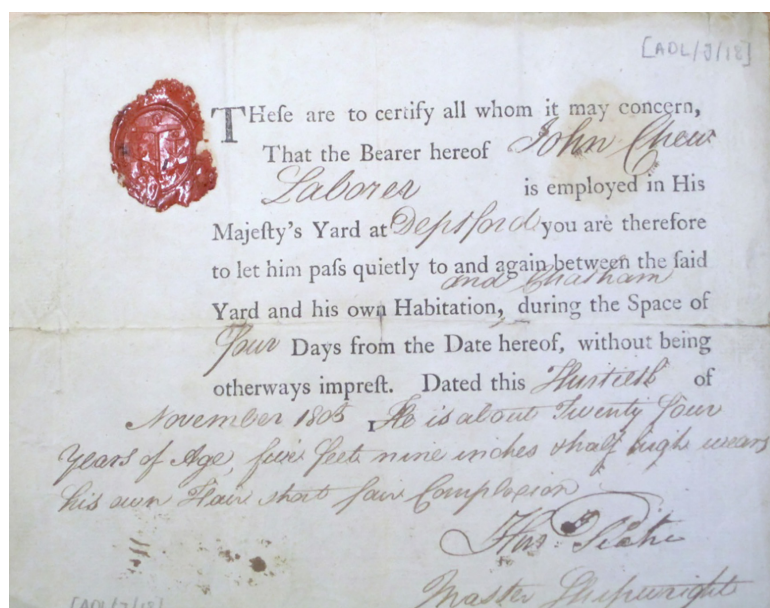 [ADL/J/18]
THeſe are to certify all whom it may concern,
That the Bearer hereof John Chew
Laborer is employed in His
Majeſty's Yard at Deptford you are therefore
to let him paſs quietly to and again between the ſaid
and Chatham
Yard and his own Habitation, during the Space of
Four Days from the Date hereof, without being
otherways impreſt. Dated this Thirtieth of
November 1805 He is about Twenty four
Years of Age, five feet nine inches & half high wears
his own Hair short fair Complexion
Master Shipwright
[ADL/J/18]